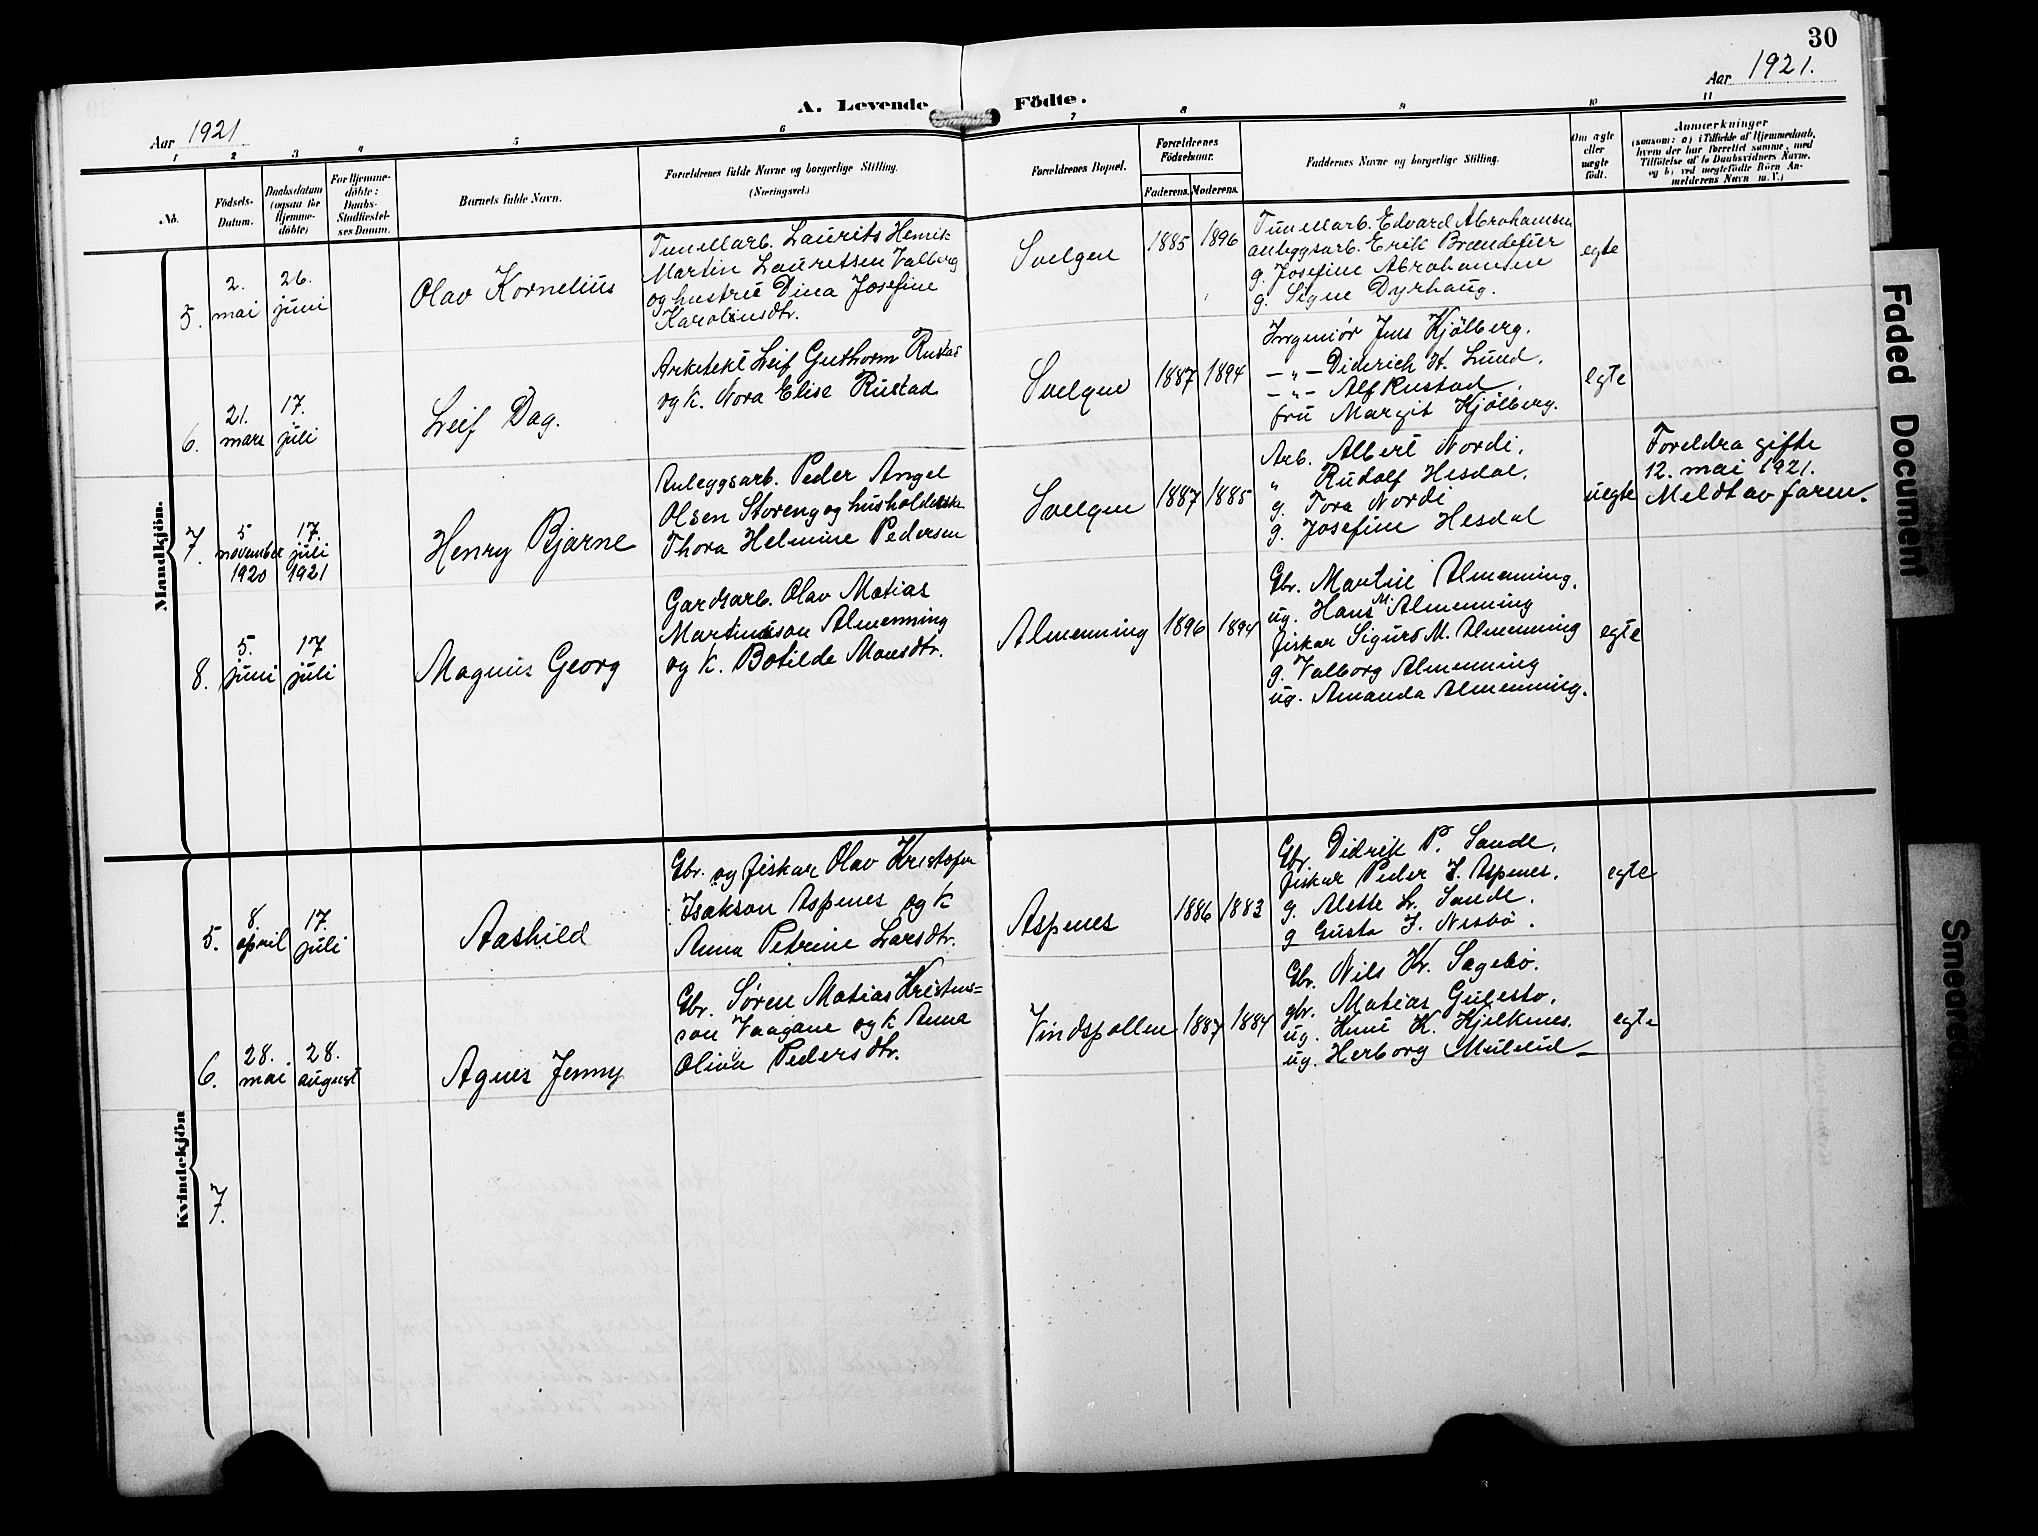 30
Aar 1921.
A. Levende Födte.
Aar 1921
1 2 3 4 5 6 7 8 9 10 11
No.
Födsels-
Datum.
Daabsdatum
(ogsaa for
Hjemme-
döbte)
For Hjemme-
döbte:
Daabs-
Stadfæstel-
ses Datum.
Barnets fulde Navn.
Forældrenes fulde Navne og borgerlige Stilling.
(Næringsvei.)
Forældrenes Bopæl.
Forældrenes
Födselsaar.
Faderens. Moderens.
Faddernes Navne og borgerlige Stilling.
Om ægte
eller
uægte
födt.
Anmærkninger
(saasom: a) i Tilfælde af Hjemmedaab,
hvem der har forrettet samme, med
Tilföielse af to Daabsvidners Navne,
og b) ved uegtefödte Börn An-
melderens Navn m. V.)
Mandkjön.
5.
2.
mai
26.
juni
Olav Kornelius
Tunellarb. Laurits Henrik
Martin Lauretsen Valberg
og hustru Dina Josefine
Karoliusdtr.
Svelgen
1885 1896
Tunellarb. Edvard Abrahamsen
anleggsarb. Erik Brændefur
g. Josefine Abrahamsen
g. Signe Dyrhaug.
egte
6.
21.
mars
17.
juli
Leif Dag.
Arkitekt Leif Guthorm Rustad
og k. Nora Elise Rustad
Svelgen
1887 1894
Ingeniör Jens Kjölberg.
— " — Diderich H. Lund.
— " — Alf Rustad.
fru Margit Kjölberg.
egte
7.
5
november
1920
17.
juli
1921
Henry Bjarne
Anleggsarb. Peder Angel
Olsen Storeng og husholderske
Thora Helmine Pedersen
Svelgen
1887 1885
Arb. Albert Nordi.
" Rudolf Hesdal.
g. Tora Nordi
g. Josefine Hesdal
uegte
Foreldra gifte
12. mai 1921.
Meldt av faren.
8.
5.
juni
17
juli
Magnus Georg
Gardsarb. Olav Matias
Martinusson Almenning
og k. Botilde Monsdtr.
Almenning
1896 1894
Gbr. Martin Almenning.
ug. Hans M. Almenning
fiskar Sigurd M. Almenning
g. Valborg Almenning
ug. Amanda Almenning.
egte
Kvindekjön
5.
8.
april
17.
juli
Aashild
Gbr. og fiskar Olav Kristofer
Isakson Aspenes og k
Anna Petrine Larsdtr.
Aspenes
1886 1883
Gbr. Didrik P. Sande.
fiskar Peder I. Aspenes.
g. Alette L. Sande.
g Gusta I. Nesbö.
egte
6.
28.
mai
28.
august
Agnes Jenny
Gbr. Sören Matias Kristens=
son Vaagane og k Anna
Olina Pedersdtr.
Vindspollen
1887 1884
Gbr. Nils Kr. Sagebö.
gbr. Matias Gulestö.
ug. K. Hjelknes.
ug. Herborg
egte
7.
Faded Document
Smeared